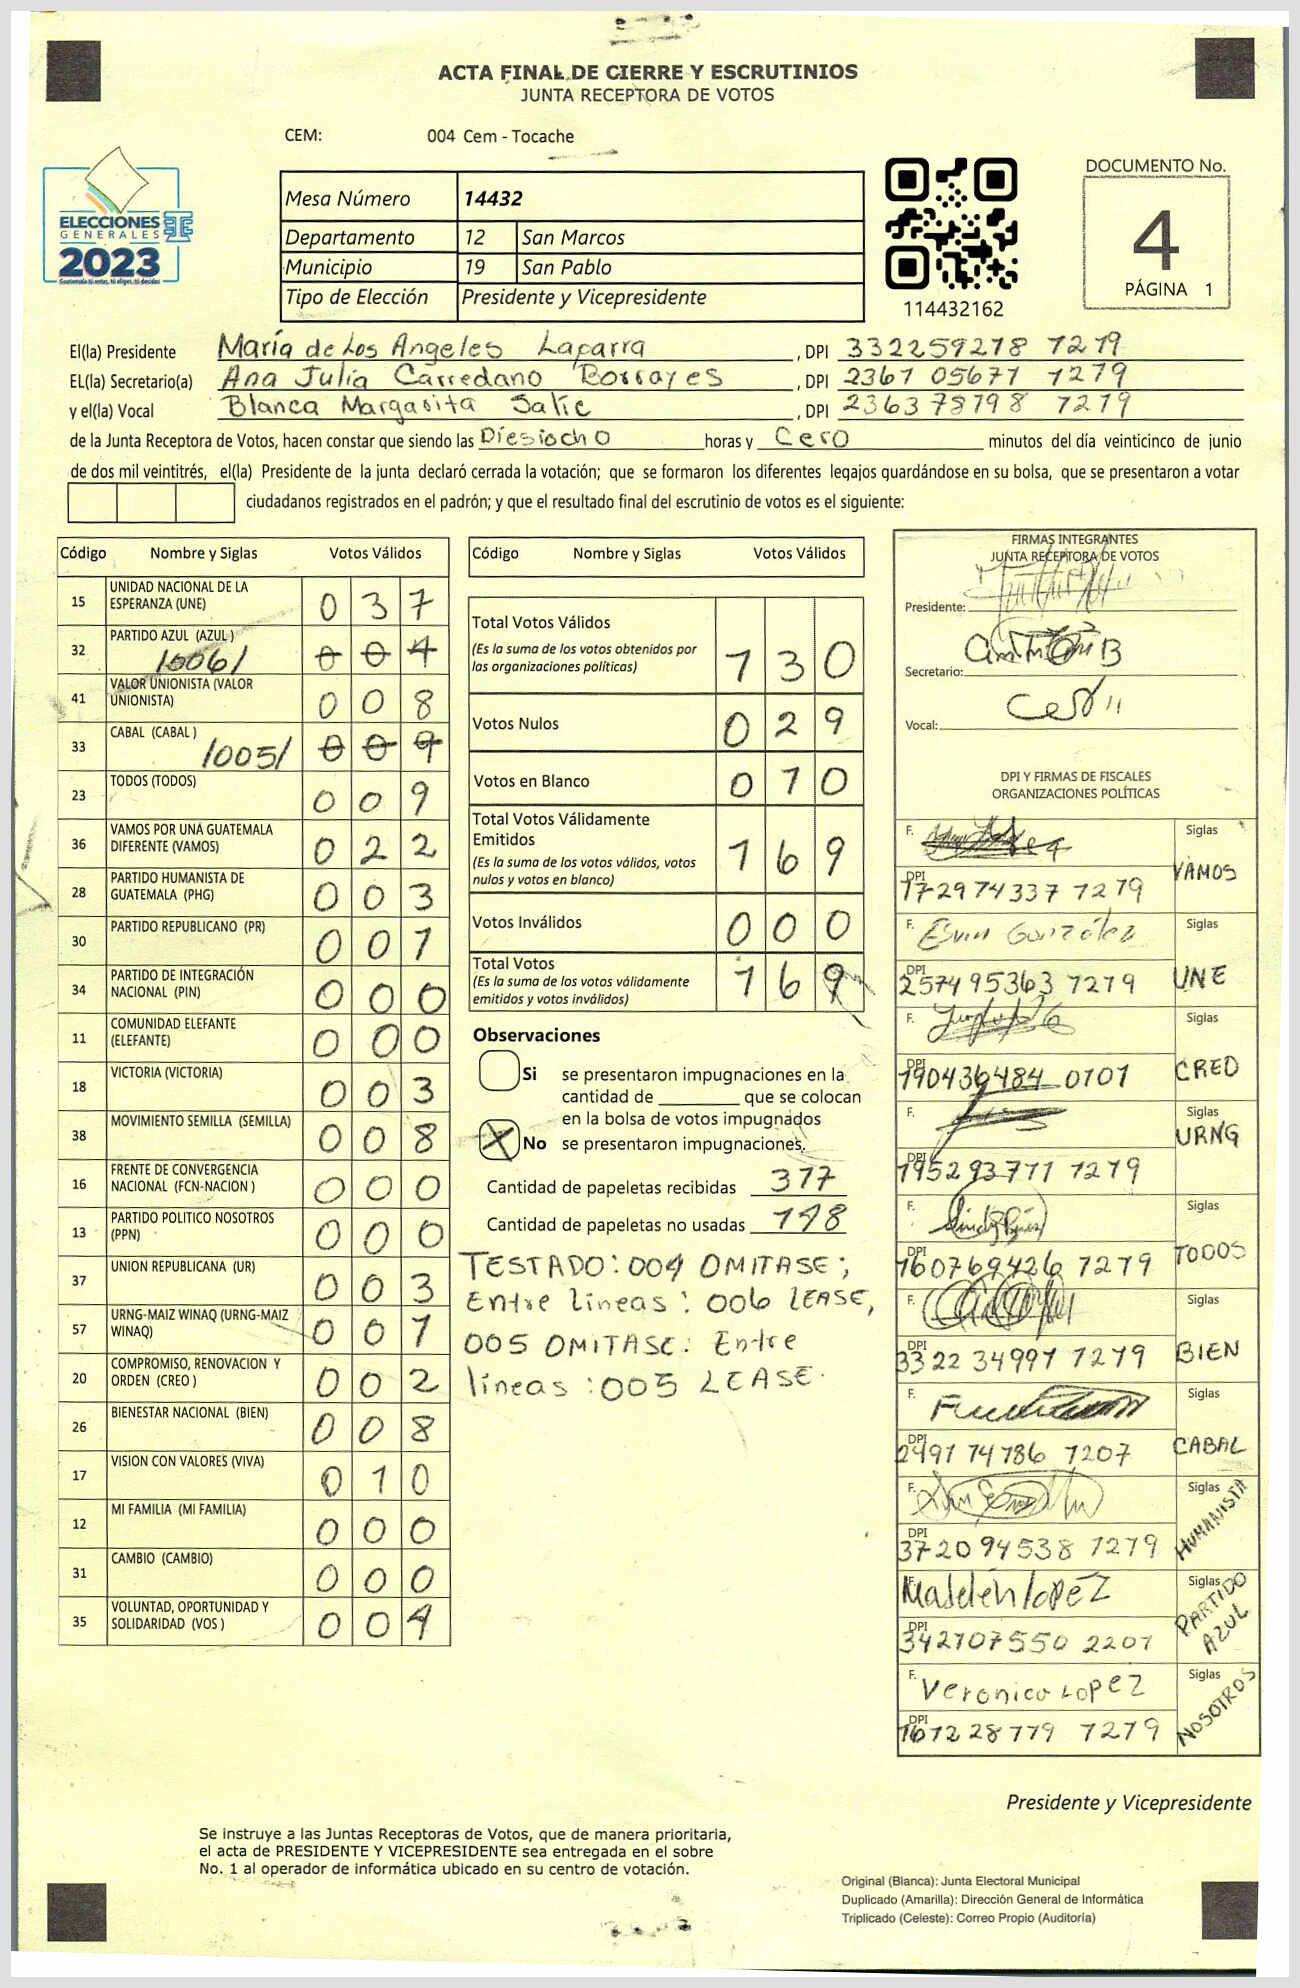 ACTA FINAL DE CIERRE Y ESCRUTINIOS
JUNTA RECEPTORA DE VOTOS
CEM: 004 Cem - Tocache
ELECCIONES
GENERALES
2023
Mesa Número 14432
Departamento 12 San Marcos
Municipio 19 San Pablo
Tipo de Elección Presidente y Vicepresidente
114432162
DOCUMENTO No.
4
PÁGINA 1
El(la) Presidente María de Los Angeles Laparra , DPI 332259278 7279
EL(la) Secretario(a) Ana Julia Carredano Borrayes , DPI 2367 05677 7279
y el(la) Vocal Blanca Margarita Salic , DPI 236378798 7279
de la Junta Receptora de Votos, hacen constar que siendo las Diesiocho horas y Cero minutos del día veinticinco de junio
de dos mil veintitrés, el(la) Presidente de la junta declaró cerrada la votación; que se formaron los diferentes legajos guardándose en su bolsa, que se presentaron a votar
ciudadanos registrados en el padrón; y que el resultado final del escrutinio de votos es el siguiente:
Código Nombre y Siglas Votos Válidos
15 UNIDAD NACIONAL DE LA ESPERANZA (UNE) 037
32 PARTIDO AZUL (AZUL) /006/ 004
41 VALOR UNIONISTA (VALOR UNIONISTA) 008
33 CABAL (CABAL) /005/ 009
23 TODOS (TODOS) 009
36 VAMOS POR UNA GUATEMALA DIFERENTE (VAMOS) 022
28 PARTIDO HUMANISTA DE GUATEMALA (PHG) 003
30 PARTIDO REPUBLICANO (PR) 001
34 PARTIDO DE INTEGRACIÓN NACIONAL (PIN) 000
11 COMUNIDAD ELEFANTE (ELEFANTE) 000
18 VICTORIA (VICTORIA) 003
38 MOVIMIENTO SEMILLA (SEMILLA) 008
16 FRENTE DE CONVERGENCIA NACIONAL (FCN-NACION) 000
13 PARTIDO POLITICO NOSOTROS (PPN) 000
37 UNION REPUBLICANA (UR) 003
57 URNG-MAIZ WINAQ (URNG-MAIZ WINAQ) 001
20 COMPROMISO, RENOVACION Y ORDEN (CREO) 002
26 BIENESTAR NACIONAL (BIEN) 008
17 VISION CON VALORES (VIVA) 010
12 MI FAMILIA (MI FAMILIA) 000
31 CAMBIO (CAMBIO) 000
35 VOLUNTAD, OPORTUNIDAD Y SOLIDARIDAD (VOS) 004
Código Nombre y Siglas Votos Válidos
Total Votos Válidos 130
(Es la suma de los votos obtenidos por
las organizaciones políticas)
Votos Nulos 029
Votos en Blanco 010
Total Votos Válidamente
Emitidos 169
(Es la suma de los votos válidos, votos
nulos y votos en blanco)
Votos Inválidos 000
Total Votos 169
(Es la suma de los votos válidamente
emitidos y votos inválidos)
Observaciones
Si se presentaron impugnaciones en la
cantidad de ________ que se colocan
en la bolsa de votos impugnados
X No se presentaron impugnaciones.
Cantidad de papeletas recibidas 317
Cantidad de papeletas no usadas 148
TESTADO: 004 OMITASE;
Entre lineas: 006 LEASE,
005 OMITASE: Entre
líneas: 005 LEASE.
FIRMAS INTEGRANTES
JUNTA RECEPTORA DE VOTOS
Presidente:
Secretario:
Vocal:
DPI Y FIRMAS DE FISCALES
ORGANIZACIONES POLÍTICAS
F. Siglas
VAMOS
DPI
1729 74337 7279
F. Esvin González Siglas
UNE
DPI
2574 95363 7279
F. Siglas
CREO
DPI
190436484 0101
F. Siglas
URNG
DPI
195293771 7279
F. Siglas
TODOS
DPI
160769426 7279
F. Siglas
BIEN
DPI
3322 34997 7279
F. Siglas
CABAL
DPI
2491 74786 7207
F. Siglas
HUMANISTA
DPI
372094538 7279
F. Madelén lopez Siglas
PARTIDO AZUL
DPI
342707550 2207
F. Veronica Lopez Siglas
NOSOTROS
DPI
167228779 7279
Presidente y Vicepresidente
Se instruye a las Juntas Receptoras de Votos, que de manera prioritaria,
el acta de PRESIDENTE Y VICEPRESIDENTE sea entregada en el sobre
No. 1 al operador de informática ubicado en su centro de votación.
Original (Blanca): Junta Electoral Municipal
Duplicado (Amarilla): Dirección General de Informática
Triplicado (Celeste): Correo Propio (Auditoría)